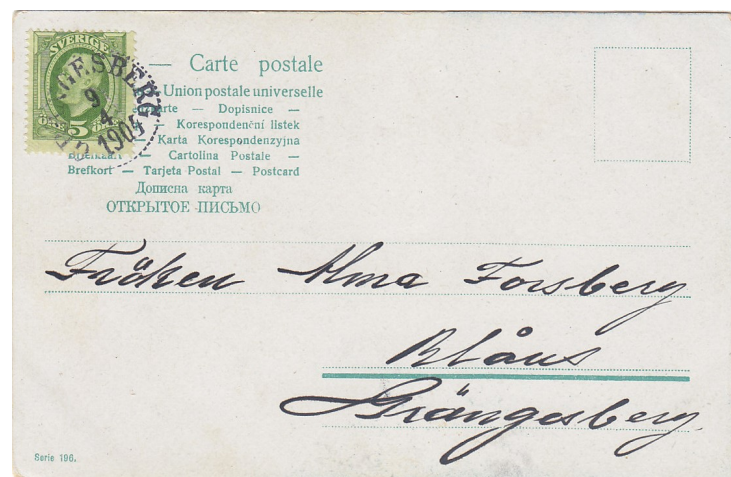 SVERIGE
5
ÖRE
GESBERG
9
4
1905
— Carte postale
Union postale universelle
— Dopisnice —
— Korespondenční listek
— Karta Korespondenzyjna
— Cartolina Postale —
Brefkort — Tarjeta Postal — Postcard
Дописна карта
ОТКРЫТОЕ ПИСЬМО
Fröken Alma Forsberg
Blåns
Grängesberg.
Serie 196.